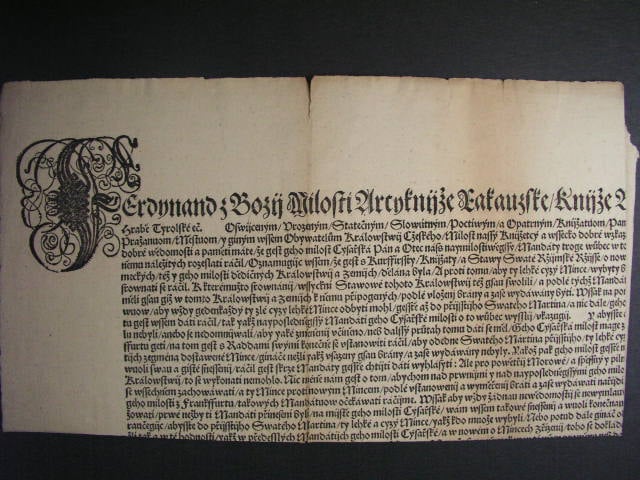 FErdynand z Božij Milosti Arcyknijže Rakauzske/Knijže
Hrabě Tyrolské etc. Oswijceným/Vrozeným/Statečným/Slowútným/Poctiwým/a Opatrným/Knijžatuom/Pan
Pražanuom/Městuom/y giným wssem Obywateluom Králowstwij Cžeského/Milost nassy Knijžetcý a wssecko dobré wzkaz
dobré wědomosti a paměti máte/že gest geho milost Cýsařská Pan a Otec náss naymilostiwěgssý/Mandáty
němu náležitých rozeslati ráčil/Oznamugijc wssem/že gest s Kurffirssty/Knijžaty/a Stawy Swaté Ržijmské Ržijsse/o
též y geho milosti dědičných Králowstwij a Zemijch/dělána byla/A proti tomu/aby ty lehké cyzý Mince/wybyty
srownati se ráčil/K kterémužto srownánij/wssyckni Stawowé tohoto Králowstwij též gsau swolili/a podlé týchž Mandát
měli gsau giž w tomto Králowstwij a Zemijch k němu připogených/podlé vložený brány a zase wydáwány býti.
wuow/aby wždy gedenkaždý ty zlé cyzý lehké Mince odbyti mohl/gesstě až do přijsstijho Swatého Martina/a nic dále/geho
tu gest wssem dáti ráčil/tak yakž nayposledněgssý Mandáti geho Cýsařské milosti o to wůbec wyssli/wkazugij.
lu nebyli/aneb se neomniwali/aby yaké změnění včiněno/neb dalssý průtah tomu dáti se měl/Geho Cýsařská milost
ffurtu geti/na tom gest s Raddami swými konečně se vstanowiti ráčil/aby odedne Swatého Martina přijsstijho/ty lehké
dostawené Mince/gináče nežli yakž wsazeny gsau brány/a zase wydáwány nebyly.
swuoli swau a gisté snessení/ráčil gest skrze Mandáty gesstě chtijti dáti wyhlásyti: Ale pro powětřij Morowé/a spěssný
Králowstwij/to se wykonati nemohlo. Nic méně nám gest o tom/abychom nad prwnijmi y nad nayposledněgssými geho
se wssechněm zachowáwati/a ty Mince protiwným Mincem/podlé vstanowenij a wyměřenij brati a zase wydáwati
geho milosti z Frankffurtu/takowých Mandátuow očekáwati ráčijme. Wssak aby wždy žádnau newědomostij se newymlau
žowati/prwé nežby ti Mandáti přineseni byli/na mijstě geho milosti Cýsařské/wám wssem takowé snessenij a wuoli
/abysste do přijsstijho Swatého Martina/ty lehké a cyzý Mince/yakž kdo muože wybyli/Nebo potud dále gináč
žli tak a w té hodnosti/yakž w předesslých Mandátijch geho milosti Cýsařské/a w nowém o Mincech Zřijzenij/toho se